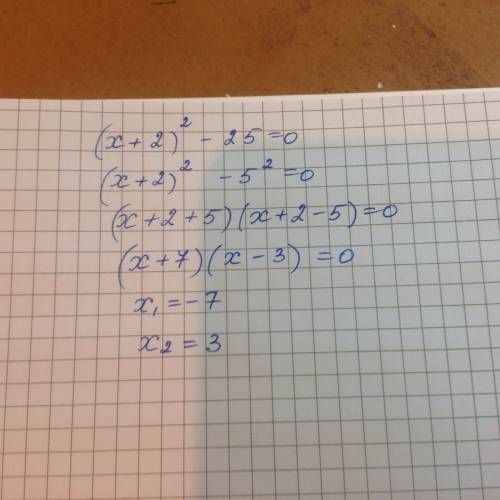 (x+2)² - 25=0
(x+2)² - 5²=0
(x+2+5)(x+2-5)=0
(x+7)(x-3)=0
x₁=-7
x₂=3